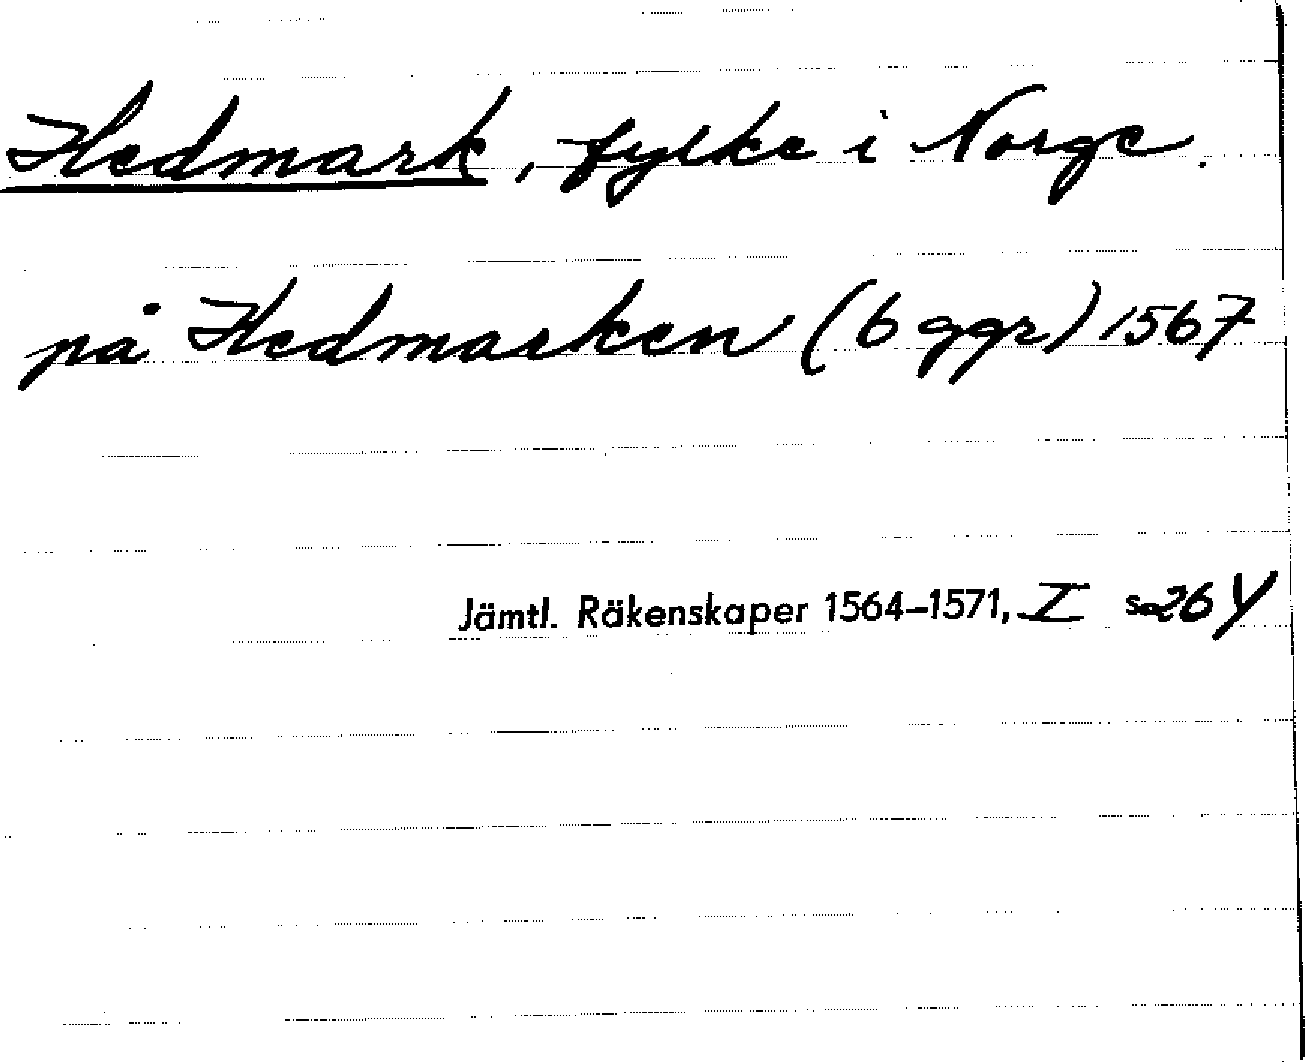 Hedmark, fylke i Norge.
på Hedmarken (6 ggr) 1567
Jämtl. Räkenskaper 1564–1571, I s 264